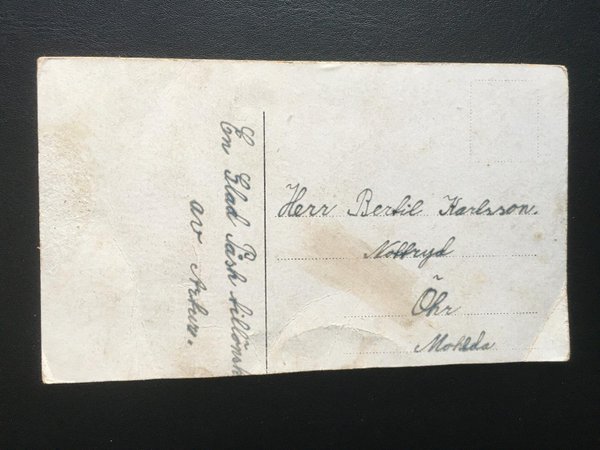 En Glad Påsk tillönsk
av Artur.
Herr Bertil Karlsson.
Nottryd
Öhr
Moheda